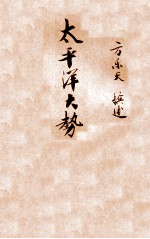 太平洋大勢
方乐天 撰述